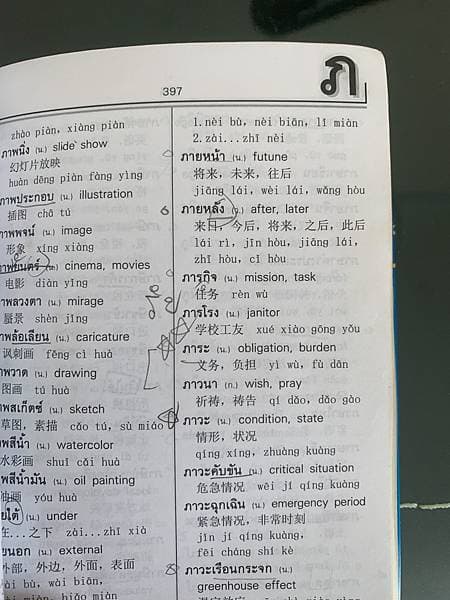 ภ
397
zhào piàn, xiàng piàn
ภาพนิ่ง (น.) slide show
幻灯片放映
huàn dēng piàn fàng yìng
ภาพประกอบ (น.) illustration
插图 chā tú
าพพจน์ (น.) image
形象 xíng xiàng
าพยนตร์ (น.) cinema, movies
电影 diàn yǐng
าพลวงตา (น.) mirage
蜃景 shèn jǐng
าพล้อเลียน (น.) caricature
讽刺画 fěng cì huà
าพวาด (น.) drawing
图画 tú huà
าพสเก็ตซ์ (น.) sketch
草图, 素描 cǎo tú, sù miáo
าพสีน้ำ (น.) watercolor
水彩画 shuǐ cǎi huà
าพสีน้ำมัน (น.) oil painting
油画 yóu huà
ยใต้ (น.) under
在...之下 zài...zhī xià
ยนอก (น.) external
外部, 外边, 外面, 表面
wài bù, wài biān,
wài miàn, biǎo miàn
1.nèi bù, nèi biān, lǐ miàn
2.zài...zhī nèi
ภายหน้า (น.) futune
将来, 未来, 往后
jiāng lái, wèi lái, wǎng hòu
ภายหลัง (ว.) after, later
来日, 今后, 将来, 之后, 此后
lái rì, jīn hòu, jiāng lái,
zhī hòu, cǐ hòu
ภารกิจ (น.) mission, task
任务 rèn wù
ภารโรง (น.) janitor
学校工友 xué xiào gōng yǒu
ภาระ (น.) obligation, burden
义务, 负担 yì wù, fù dān
ภาวนา (ก.) wish, pray
祈祷, 祷告 qí dǎo, dǎo gào
ภาวะ (น.) condition, state
情形, 状况
qíng xíng, zhuàng kuàng
ภาวะคับขัน (น.) critical situation
危急情况 wēi jí qíng kuàng
ภาวะฉุกเฉิน (น.) emergency period
紧急情况, 非常时刻
jǐn jí qíng kuàng,
fēi cháng shí kè
ภาวะเรือนกระจก (น.)
greenhouse effect